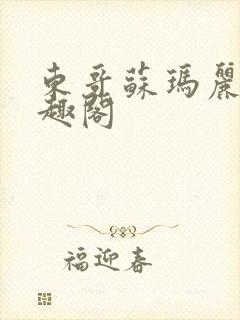 東哥蘇瑪麗
趣閣
福迎春